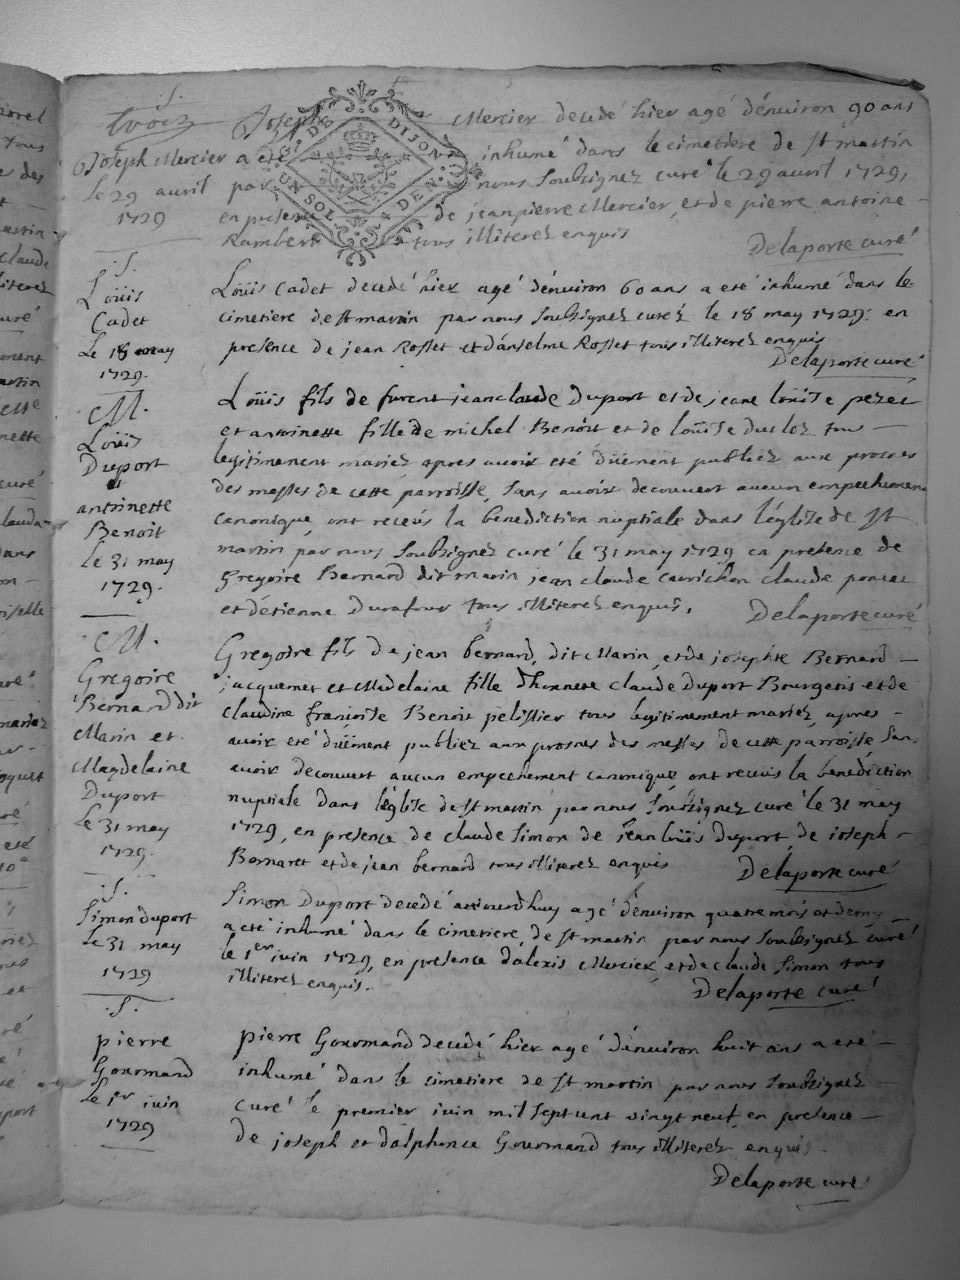 .S.
Joseph Mercier decedé hier agé d'environ 90 ans
Joseph Mercier a eté inhumé dans le cimetiere de st martin
le 29 auril par nous Soubsignez curé le 29 auril 1729,
1729 en presence de jean pierre Mercier, et de pierre antoine
Rambert tous illiterez enquis
Delaporte curé
GEN. DE DIJON
UN SOL DEN.
.S.
Loüis
Cadet
le 18 may
1729.
Loüis Cadet decedé hier agé d'environ 60 ans a eté inhumé dans le
cimetiere de st martin par nous soubsignez curez le 18 may 1729. en
presence de jean Rosset et d'anselme Rosset tous illiterez enquis
Delaporte curé
.M.
Loüis
Duport
et
antoinette
Benoit
le 31 may
1729.
Loüis fils de furent jean claude Duport et de jeane loüise pezet
et antoinette fille de michel Benoit et de loüise tous
legitimement mariez apres auoir eté düement publiez aux prosnes
des messes de cette parroisse, sans auoir decouuert aucun empechement
canonique, ont receüs la benediction nuptiale dans l'église de st
martin par nous soubsignez curé le 31 may 1729 en presence de
gregoire Bernard dit marin jean claude claude poncet
et d'etienne Durafour tous illiterez enquis.
Delaporte curé
.M.
Gregoire
Bernard dit
Marin et
Magdelaine
Duport
le 31 may
1729.
Gregoire fils de jean bernard, dit Marin, et de josephte Bernard
jacquemet et Madelaine fille d'honnete claude Duport Bourgeois et de
claudine francoise Benoit pelissier tous legitimement mariez, apres
auoir eté düement publiez aux prosnes des messes de cette parroisse san
auoir decouuert aucun empechement canonique, ont receüs la benediction
nuptiale dans l'églize de st martin par nous soubsignez curé le 31 may
1729, en presence de claude simon de jean loüis Duport, de ioseph
Bornaret et de jean bernard tous illiterez enquis
Delaporte curé
.S.
Simon duport
le 31 may
1729
Simon Duport decedé aujourdhuy agé d'enuiron quatre mois et demy
a eté inhumé dans le cimetiere, de st martin par nous soubsignez curé
le 1er iuin 1729, en presence d'alexis Mercier, et de claude Simon tous
illiterez enquis.
Delaporte curé
.S.
pierre
Gourmand
le 1er iuin
1729
pierre Gourmand decedé hier agé d'enuiron huit ans a eté
inhumé dans le cimetiere de st martin par nous soubsignez
curé le premier iuin mil sept cent vingt neuf, en presence
de joseph et d'alphonce Gourmand tous illiterez enquis.
Delaporte curé